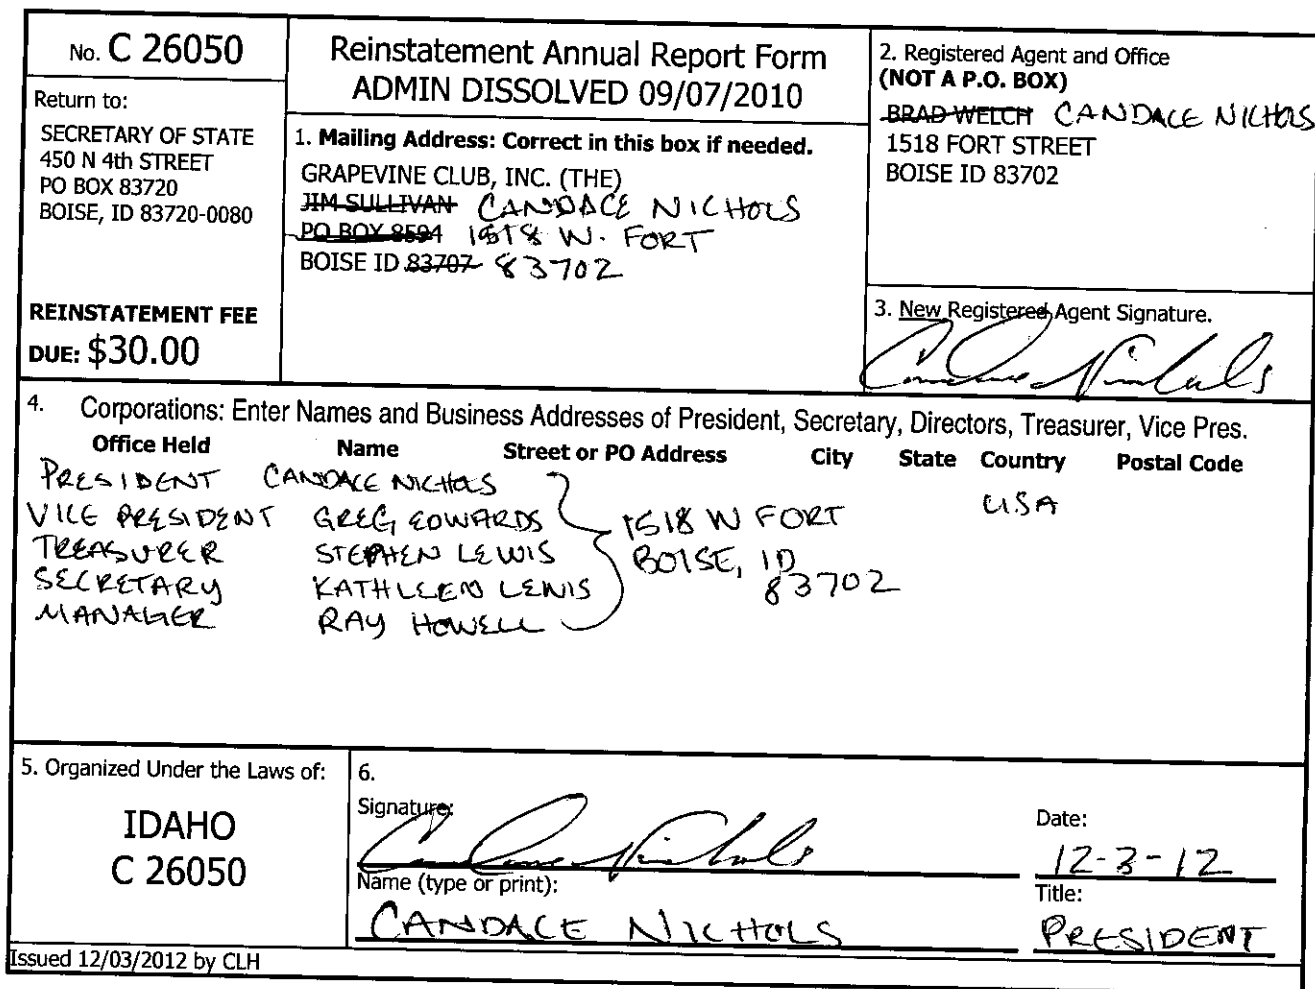 No. C 26050
Return to:
SECRETARY OF STATE
450 N 4th STREET
PO BOX 83720
BOISE, ID 83720-0080
REINSTATEMENT FEE
DUE: $30.00
Reinstatement Annual Report Form
ADMIN DISSOLVED 09/07/2010
1. Mailing Address: Correct in this box if needed.
GRAPEVINE CLUB, INC. (THE)
JIM SULLIVAN CANDACE NICHOLS
PO BOX 8594 1518 W. FORT
BOISE ID 83707 83702
2. Registered Agent and Office
(NOT A P.O. BOX)
BRAD WELCH CANDACE NICHOLS
1518 FORT STREET
BOISE ID 83702
3. New Registered Agent Signature.
Candace Nichols
4. Corporations: Enter Names and Business Addresses of President, Secretary, Directors, Treasurer, Vice Pres.
Office Held Name Street or PO Address City State Country Postal Code
PRESIDENT CANDACE NICHOLS USA
VICE PRESIDENT GREG EDWARDS 1518 W FORT
TREASURER STEPHEN LEWIS BOISE, ID
SECRETARY KATHLEEN LEWIS 83702
MANAGER RAY HOWELL
5. Organized Under the Laws of:
IDAHO
C 26050
6.
Signature:
Candace Nichols
Date:
12-3-12
Name (type or print):
CANDACE NICHOLS
Title:
PRESIDENT
Issued 12/03/2012 by CLH